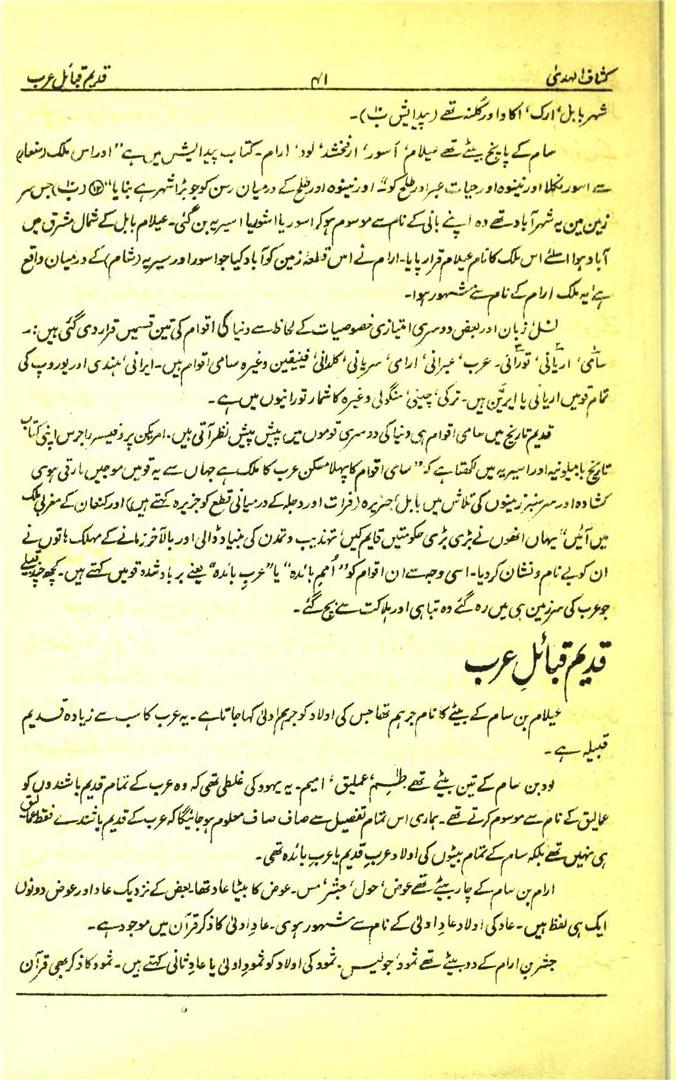 کشاف الہدیٰ ۴۱ قدیم قبائل عرب
شہر بابل، ارک، اکاد اور کلنہ تھے (پیدائش ب۱۰)۔
سام کے پانچ بیٹے تھے عیلام، اسور، ارفخشد، لود، ارام۔ کتاب پیدایش میں ہے "اور اس ملک (سنعار)
سے اسور نکلا اور نینوہ اور حیات عبر اور طلح کو۔ اور نینوہ اور طلح کے درمیان رسن کو جو بڑا شہر ہے بنایا" (ب۱۰) جس سر
زمین میں یہ شہر آباد تھے وہ اپنے بانی کے نام سے موسوم ہو کر اسور یا اشور یا اسیریہ بن گئی۔ عیلام بابل کے شمال مشرق میں
آباد ہوا اسلئے اس ملک کا نام عیلام قرار پایا۔ ارام نے اس قطعہ زمین کو آباد کیا جو اسور اور سیریہ (شام) کے درمیان واقع
ہے، یہ ملک ارام کے نام سے مشہور ہوا۔
نسل زبان اور بعض دوسری امتیازی خصوصیات کے لحاظ سے دنیا کی اقوام کی تین قسمیں قرار دی گئی ہیں:۔
سامی، اریائی، تورانی۔ عرب، عبرانی، ارامی، سریانی، کلدانی، فینیقین وغیرہ سامی اقوام ہیں۔ ایرانی، ہندی اور یوروپ کی
تمام قومیں اریائی یا ایرین ہیں۔ ترکی، چینی، منگولی وغیرہ کا شمار تورانیوں میں ہے۔
قدیم تاریخ میں سامی اقوام ہی دنیا کی دوسری قوموں میں پیش پیش نظر آتی ہیں، امریکن پروفیسر راجرس اپنی کتاب
تاریخ بابیلونیہ اور اسیریہ میں لکھتا ہے کہ "سامی اقوام کا پہلا مسکن عرب کا ملک ہے جہاں سے یہ قومیں موجیں مارتی ہوی
کشادہ اور سرسبز زمینوں کی تلاش میں بابل، جزیرہ (فرات اور دجلہ کے درمیانی قطع کو جزیرہ کہتے ہیں) اور کنعان کے مغربی ملک
میں آئیں" یہاں انھوں نے بڑی بڑی حکومتیں قایم کیں، تہذیب و تمدن کی بنیاد ڈالی اور بالآخر زمانے کے مہلک ہاتوں نے
ان کو بے نام و نشان کردیا۔ اسی وجہ سے ان اقوام کو "امم بائدہ" یا "عرب بائدہ" یعنے برباد شدہ قومیں کہتے ہیں۔ کچھ چند قبیلے
جو عرب کی سرزمین ہی میں رہ گئے وہ تباہی اور ہلاکت سے بچ گئے۔
قدیم قبائلِ عرب
عیلام بن سام کے بیٹے کا نام جرہم تھا جس کی اولاد کو جرہم اولیٰ کہا جاتا ہے۔ یہ عرب کا سب سے زیادہ قدیم
قبیلہ ہے۔
لود بن سام کے تین بیٹے تھے طسم، عملیق، امیم۔ یہ یہود کی غلطی تھی کہ وہ عرب کے تمام قدیم باشندوں کو
عمالیق کے نام سے موسوم کرتے تھے۔ ہماری اس تمام تفصیل سے صاف صاف معلوم ہو جائیگا کہ عرب کے قدیم باشندے فقط عمالیق
ہی نہیں تھے بلکہ سام کے تمام بیٹوں کی اولاد عرب قدیم یا عرب بائدہ تھی۔
ارام بن سام کے چار بیٹے تھے عوض، حول، جثر، مس۔ عوض کا بیٹا عاد تھا۔ بعض کے نزدیک عاد اور عوض دونوں
ایک ہی لفظ ہیں۔ عاد کی اولاد عاد اولیٰ کے نام سے مشہور ہوی۔ عاد اولیٰ کا ذکر قرآن میں موجود ہے۔
جثر بن ارام کے دو بیٹے تھے ثمود، جدیس۔ ثمود کی اولاد کو ثمود اولیٰ یا عاد ثانی کہتے ہیں۔ ثمود کا ذکر بھی قرآن